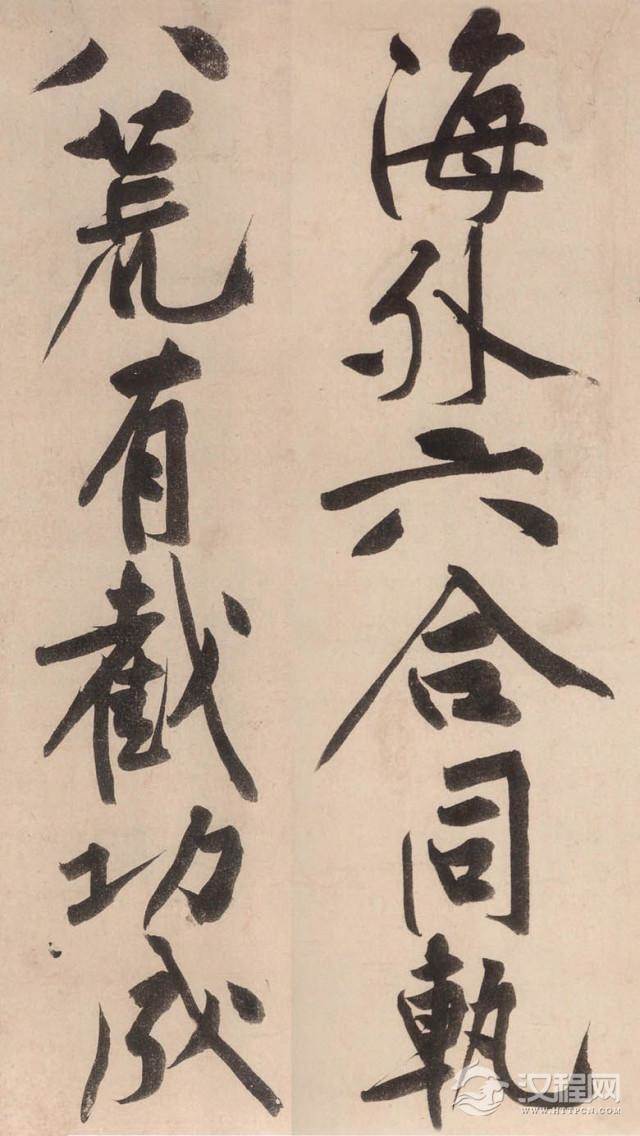 海外六合同軌
八荒有截功成
汉程网
WWW.HTTPCN.COM